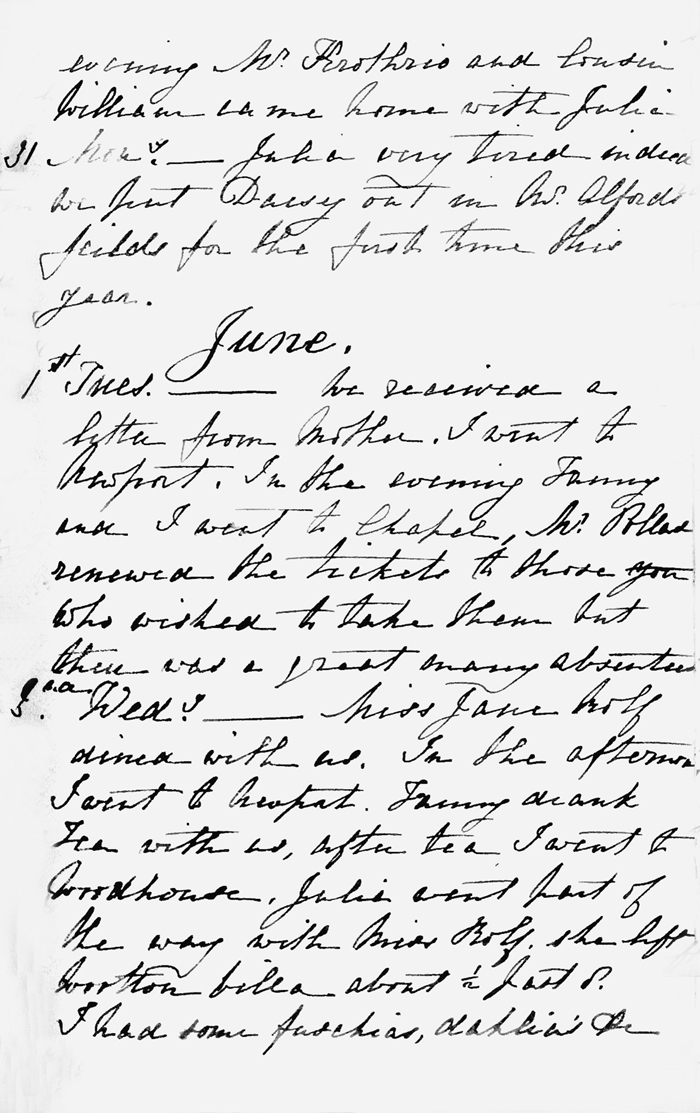 evening Mr. Frothrio and Cousin
William came home with Julia
31 Mony. — Julia very tired indeed
we put Daisy out in Mr. Alfords
feilds for the first time this
year.
June.
1st Tues. — We received a
letter from Mother. I went to
Newport. In the evening Fanny
and I went to Chapel, Mr. Pollad
renewed the tickets to those you
who wished to take them but
there was a great many absentees
Wedy. — Miss Jane Rolf
dined with us. In the afternoon
I went to Newport. Fanny drank
Tea with us, after tea I went to
Woodhouse. Julia went part of
the way with Miss Rolf. she left
Wootton billa about ½ past 8.
I had some fuschias, dahlia's &c